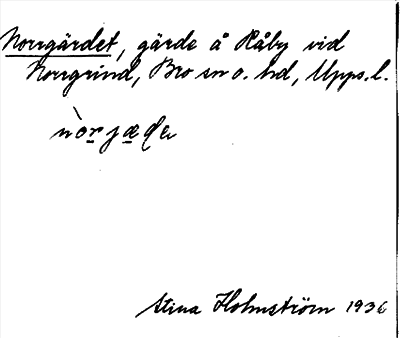 Norrgärdet, gärde å Råby vid
Norrgrind, Bro sn o. hd, Upps. l.
nòrjæde
Stina Holmström 1936